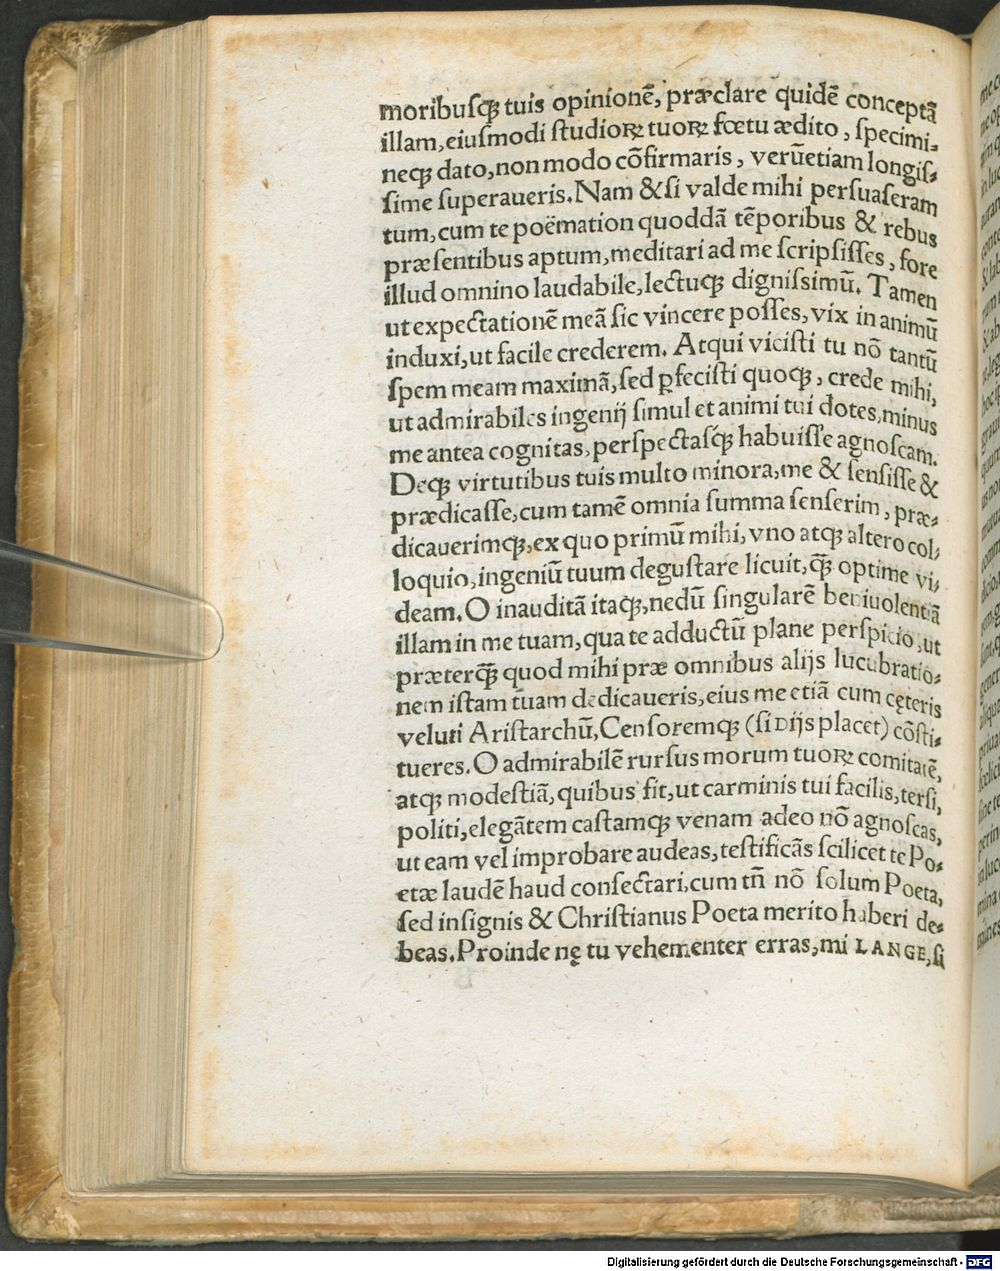 moribusq́ꝫ tuis opinionẽ, præclare quidẽ conceptã
illam, eiuſmodi ſtudioꝝ tuoꝝ fœtu ædito, ſpecimi-
neqꝫ dato, non modo cõfirmaris, verũetiam longiſ-
ſime ſuperaueris. Nam & ſi valde mihi perſuaſeram
tum, cum te poëmation quoddã tẽporibus & rebus
præſentibus aptum, meditari ad me ſcripſiſſes, fore
illud omnino laudabile, lectuqꝫ digniſsimũ. Tamen
ut expectationẽ meã ſic vincere poſſes, vix in animũ
induxi, ut facile crederem. Atqui viciſti tu nõ tantũ
ſpem meam maximã, ſed ꝑfeciſti quoqꝫ, crede mihi,
ut admirabiles ingenij ſimul et animi tui dotes, minus
me antea cognitas, perſpectasq́ꝫ habuiſſe agnoſcam.
Deqꝫ virtutibus tuis multo minora, me & ſenſiſſe &
prædicaſſe, cum tamẽ omnia ſumma ſenſerim, præ-
dicauerimqꝫ, ex quo primũ mihi, vno atqꝫ altero col-
loquio, ingeniũ tuum deguſtare licuit, q̃ꝫ optime vi-
deam. O inauditã itaqꝫ, nedũ ſingularẽ beniuolentiã
illam in me tuam, qua te adductũ plane perſpicio, ut
præterq̃ꝫ quod mihi præ omnibus alijs lucubratio-
nem iſtam tuam dedicaueris, eius me etiã cum cęteris
veluti Ariſtarchũ, Cenſoremqꝫ (ſi Dijs placet) cõſti-
tueres. O admirabilẽ rurſus morum tuoꝝ comitatẽ,
atqꝫ modeſtiã, quibus fit, ut carminis tui facilis, terſi,
politi, elegãtem caſtamqꝫ venam adeo nõ agnoſcas,
ut eam vel improbare audeas, teſtificãs ſcilicet te Po-
etæ laudẽ haud conſectari, cum tñ nõ ſolum Poeta,
ſed inſignis & Chriſtianus Poeta merito haberi de-
beas. Proinde nę tu vehementer erras, mi LANGE, ſi
Digitalisierung gefördert durch die Deutsche Forschungsgemeinschaft - DFG